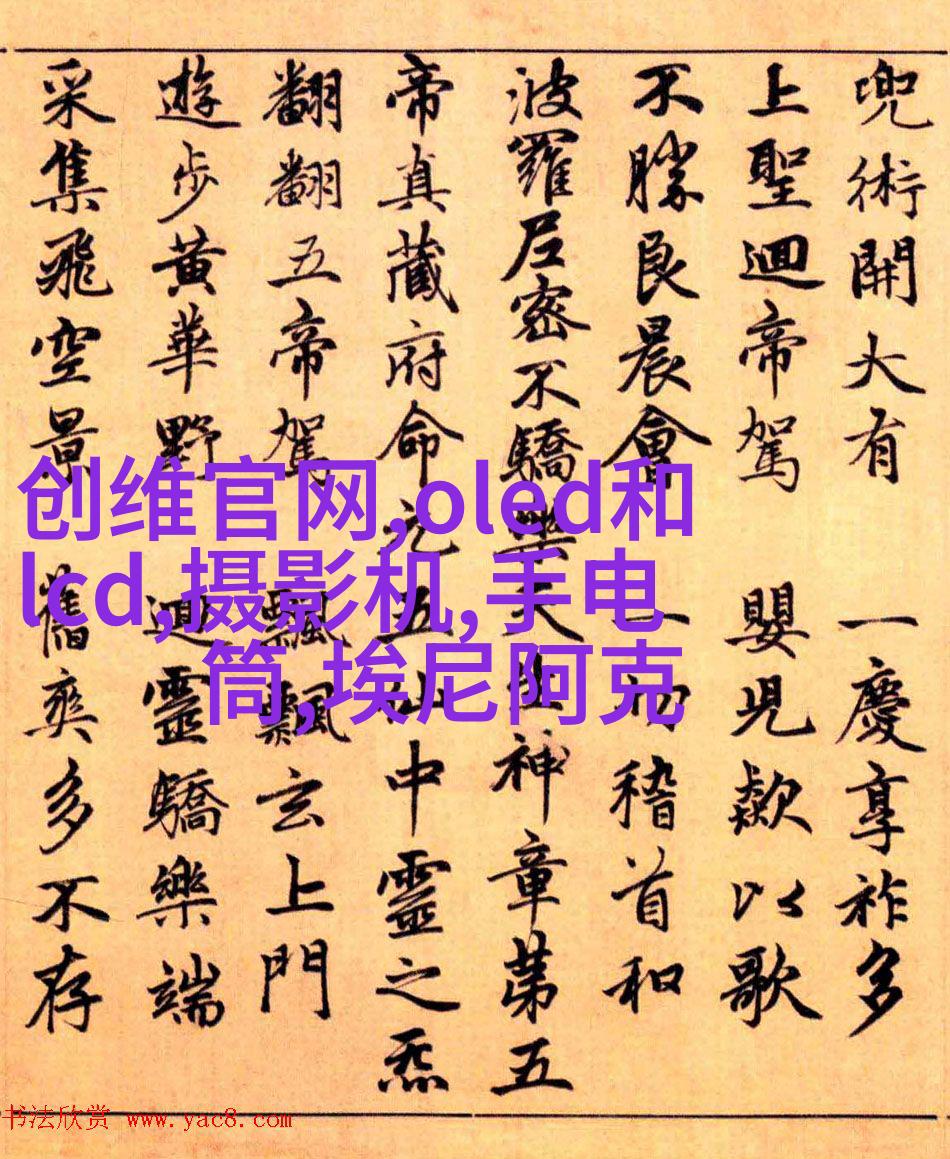 兜術開大有 一慶享祚多
上聖迴帝駕 嬰児歎以歌
不勝良晨會 一切稽首和
波羅尼密不驕樂天生神章第五
帝真藏府命元五仙中靈之炁
翻翻五帝駕 飄飄玄上門
遊步黃華野 迴靈驕樂端
采集飛空景 舊爽多不存
创维官网,oled和
lcd,摄影机,手电
筒,埃尼阿克
书法欣赏 www.yac8.com